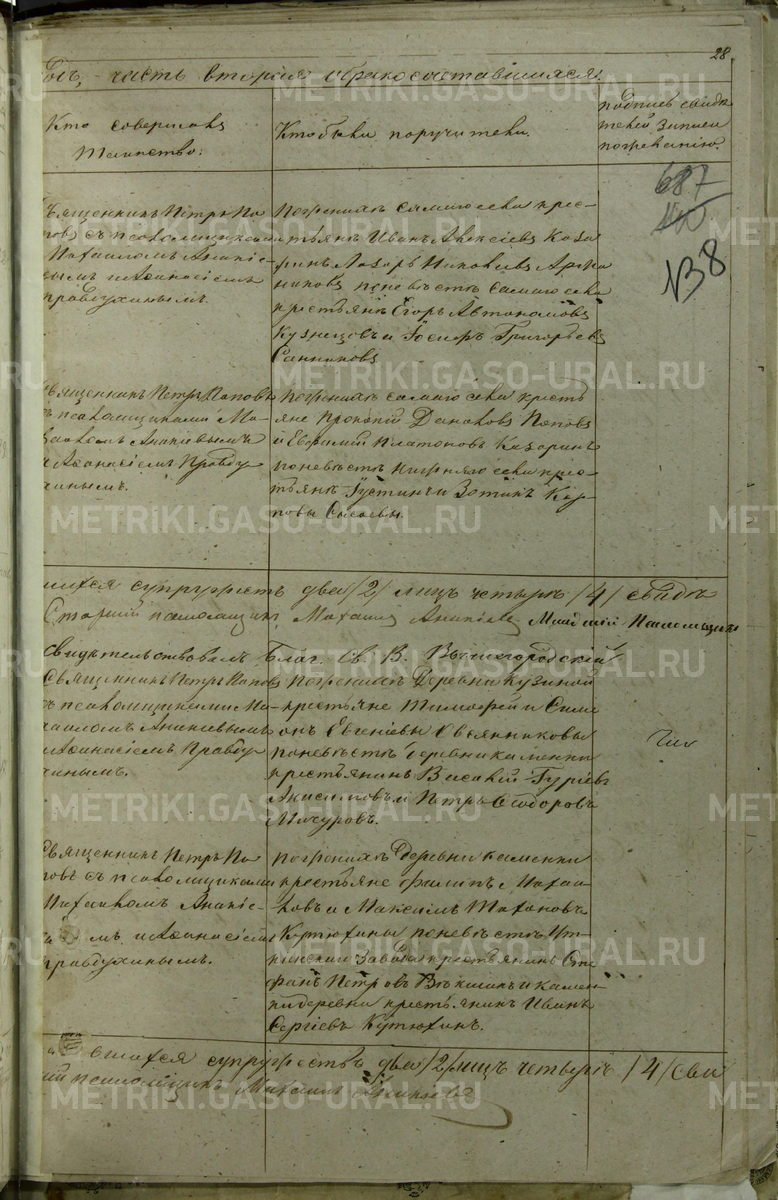 28.
часть вторая о бракосочетавшихся.
Кто совершалъ
Таинство.
Кто были поручители.
подпись свидѣ
телей записи
по желанію.
687
138
Священникъ Петръ По
повъ съ псаломщиками
Михаиломъ Ананіе
вымъ и Аѳанасіемъ
Правдухинымъ.
По женихѣ самаго села крес
тьяне Иванъ Алексіевъ Каза
ринъ Лазарь
по невѣстѣ самаго села
крестьяне Егоръ Автономовъ
Кузнецовъ и Іосифъ Григорьевъ
Санниковъ
Священникъ Петръ Поповъ
съ псаломщиками Ми
хаиломъ Ананіевымъ
и Аѳанасіемъ Правду
хинымъ.
По женихѣ самаго села кресть
яне Прокопій Даниловъ Поповъ
и Евфимій Платоновъ Казаринъ
по невѣстѣ села крес
тьяне Густинъ и Зотикъ Кар
повы Сысоевы.
супружествъ два /2/ лицъ четыре /4/ свидѣ
Старшій псаломщикъ Михаилъ Ананіевъ Младшій Псаломщикъ
Свидѣтельствовалъ Благ. Св. В. Вышегородскій
Священникъ Петръ Поповъ
съ псаломщиками Ми
хаиломъ Ананіевымъ
и Аѳанасіемъ Правду
хинымъ.
По женихѣ Деревни Кузиной
крестьяне Тимофей и Симе
онъ Евгеніевы Овсянниковы
по невѣстѣ деревни Каменки
крестьянинъ Василій Гуріевъ
Анисимовъ и Петръ Ѳеодоровъ
Мачуровъ.
Священникъ Петръ По
повъ съ псаломщиками
Михаиломъ Ананіе
вымъ и Аѳанасіемъ
Правдухинымъ.
По женихѣ Деревни Каменки
крестьяне Филипъ Михаи
ловъ и Максимъ
Кутюхины по невѣстѣ Ут
кинскаго Завода крестьянинъ Сте
фанъ Петровъ и Камен
ки деревни крестьянинъ Иванъ
Сергіевъ Кутюхинъ.
супружествъ два /2/ лицъ четыре /4/ сви
псаломщикъ Михаилъ Ананіевъ
METRIKI.GASO-URAL.RU